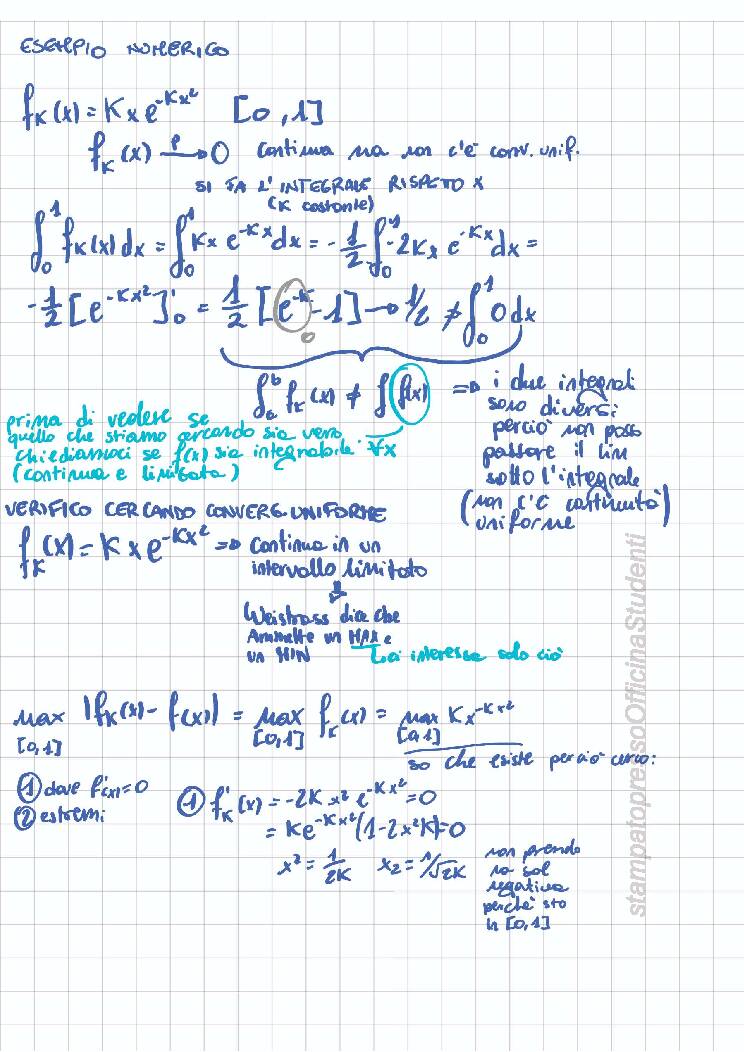 ESEMPIO NUMERICO
f_K(x) = K x e^{-Kx²} [0,1]
f_K(x) →^P 0 continua ma non c'è conv. unif.
SI FA L'INTEGRALE RISPETO X
(K costante)
∫_0^1 f_K(x) dx = ∫_0^1 Kx e^{-Kx} dx = -1/2 ∫_0^1 -2Kx e^{-Kx} dx =
-1/2 [e^{-Kx²}]_0^1 = 1/2 [e^{-K} - 1] → 1/2 ≠ ∫_0^1 0 dx
0
∫_a^b f_K(x) ≠ ∫ f(x) => i due integrali
sono diversi
perciò non posso
passare il lim
sotto l'integrale
(non c'è continuità
uniforme)
prima di vedere se
quello che stiamo cercando sia vero
chiediamoci se f(x) sia integrabile ∀x
(continua e limitata)
VERIFICO CERCANDO CONVERG UNIFORME
f_K(x) = K x e^{-Kx²} => continua in un
intervallo limitato
⇓
Weistrass dice che
Ammette un MAX e
un MIN
ci interessa solo ciò
max_{[0,1]} |f_K(x) - f(x)| = max_{[0,1]} f_K(x) = max_{[0,1]} Kx^{-Kx²}
so che esiste perciò cerco:
① dove f'(x)=0
② estremi
① f'_K(x) = -2K x² e^{-Kx²} = 0
= K e^{-Kx²} (1-2x²K) = 0
x² = 1/2K x_2 = 1/√2K
non prendo
la sol
negativa
perchè sto
in [0,1]
stampatopressoOfficinaStudenti